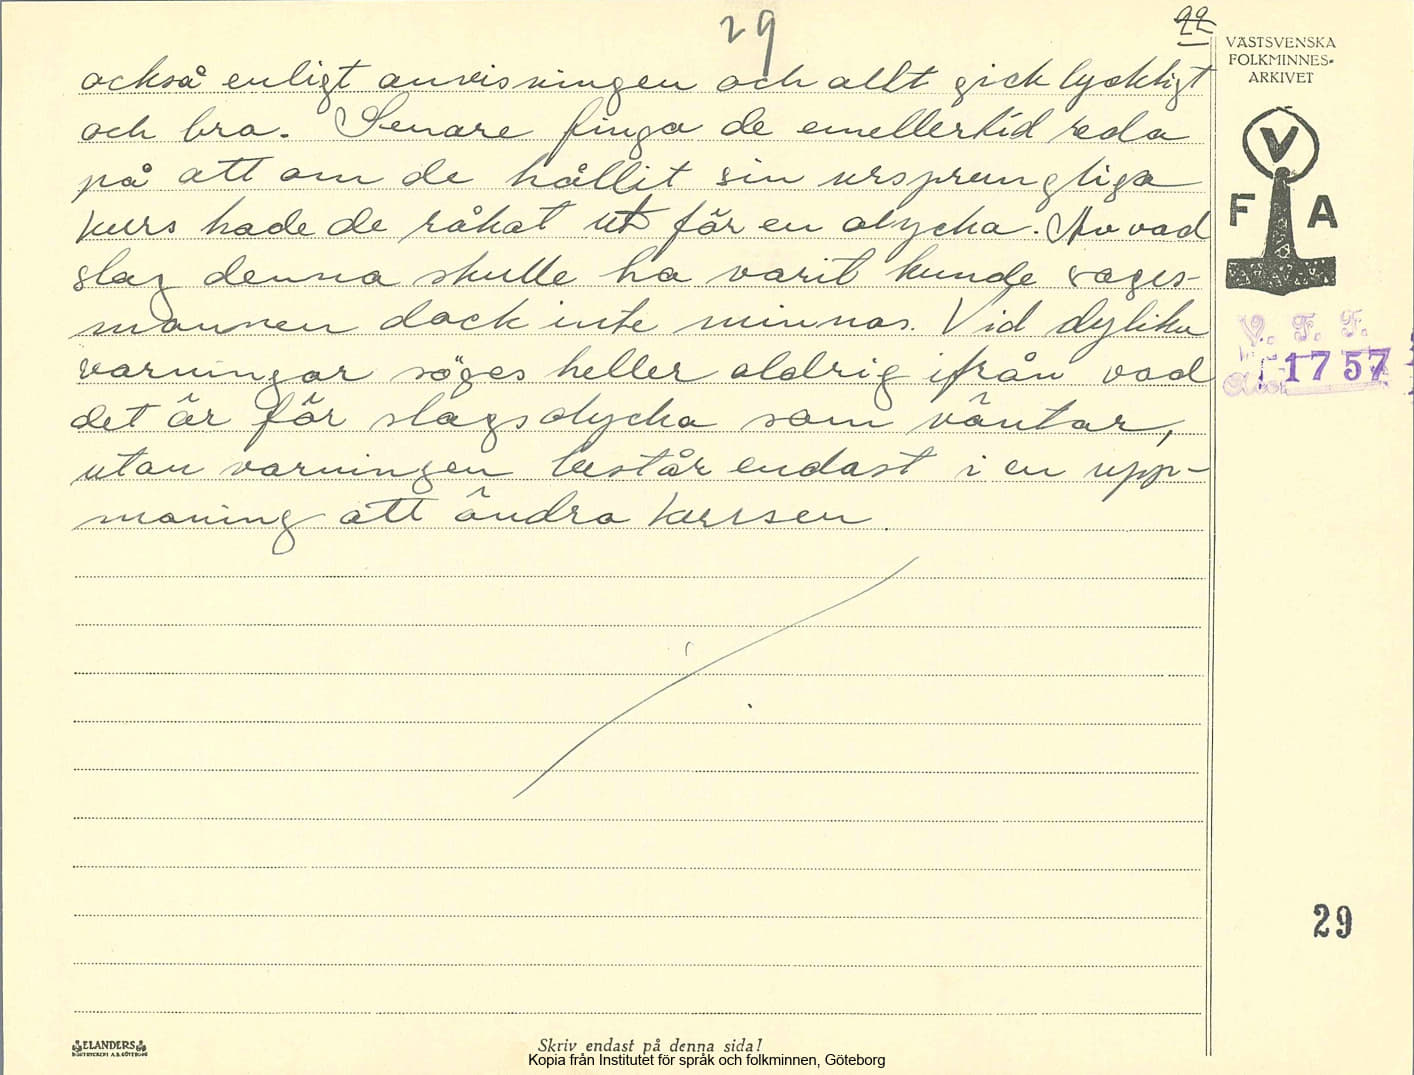 29
22
också enligt anvisningen och allt gick lyckligt
och bra. Senare finga de emellertid reda
på att om de hållit sin ursprungliga
kurs hade de råkat ut för en olycka. Av vad
slag denna skulle ha varit kunde sages-
mannen dock inte minnas. Vid dylika
varningar söges heller aldrig ifrån vad
det är för slags olycka som väntar,
utan varningen består endast i en upp-
maning att ändra kursen.
VÄSTSVENSKA
FOLKMINNES-
ARKIVET
V
F A
V. F. F.
1757
29
ELANDERS
Skriv endast på denna sida!
Kopia från Institutet för språk och folkminnen, Göteborg